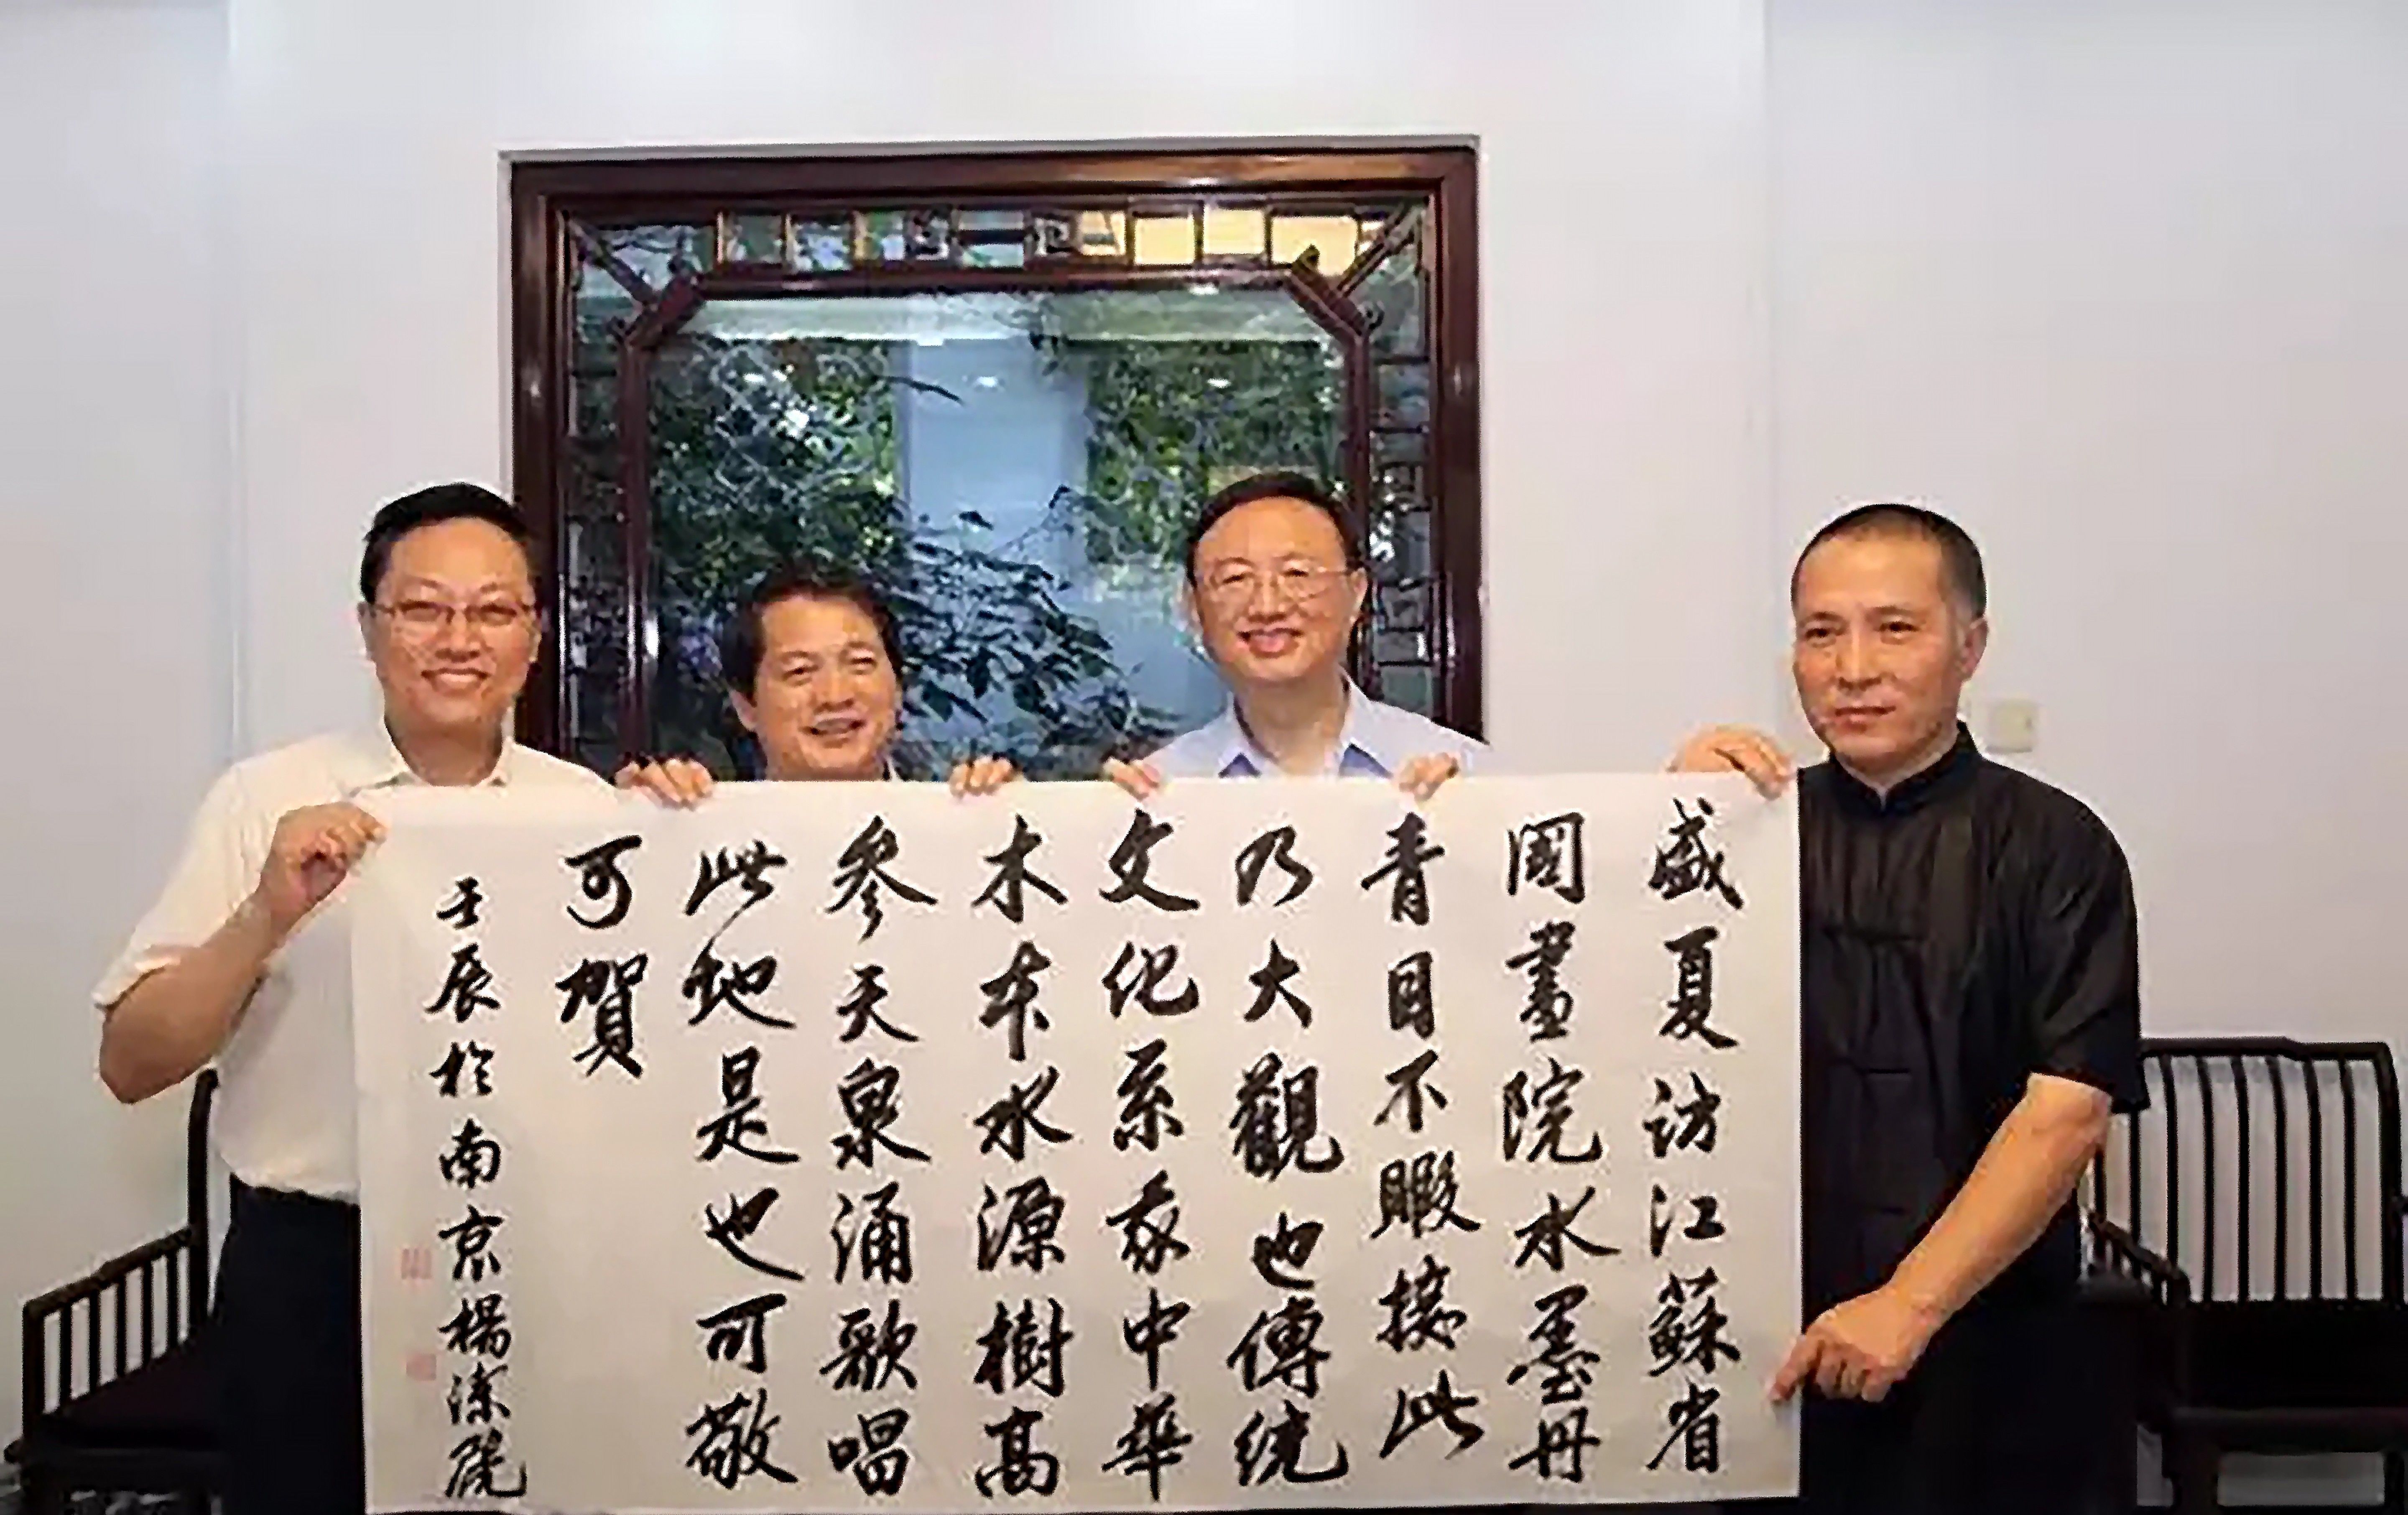 盛夏访江蘇省
國畫院水墨丹
青目不暇接此
乃大觀也傳统
文化系我中華
木本水源樹高
參天泉涌歌唱
此地是也可敬
可賀
壬辰於南京楊潔篪